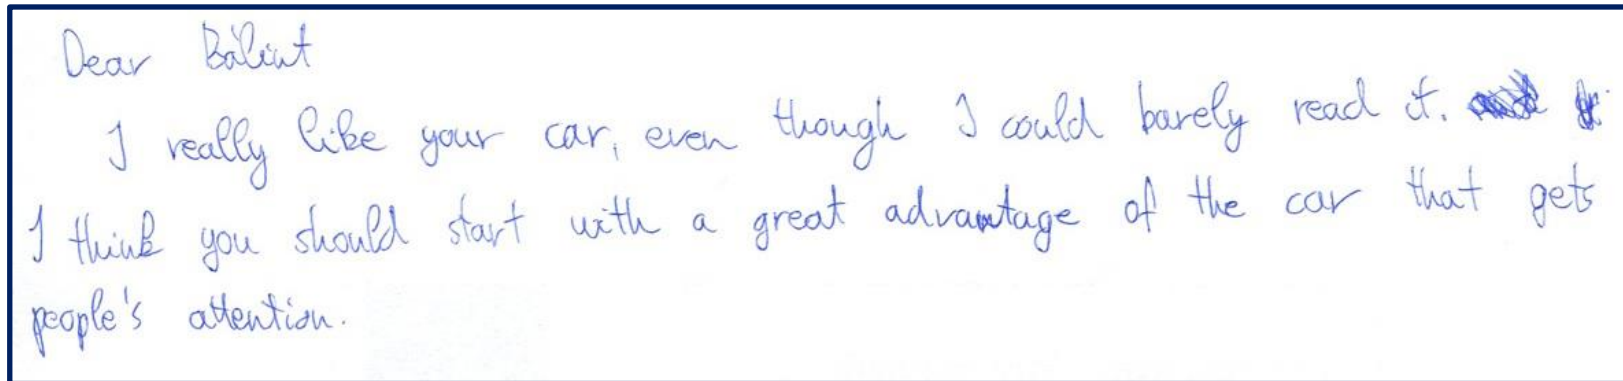 Dear Bálint
I really like your car, even though I could barely read it.
I think you should start with a great advantage of the car that gets
people's attention.